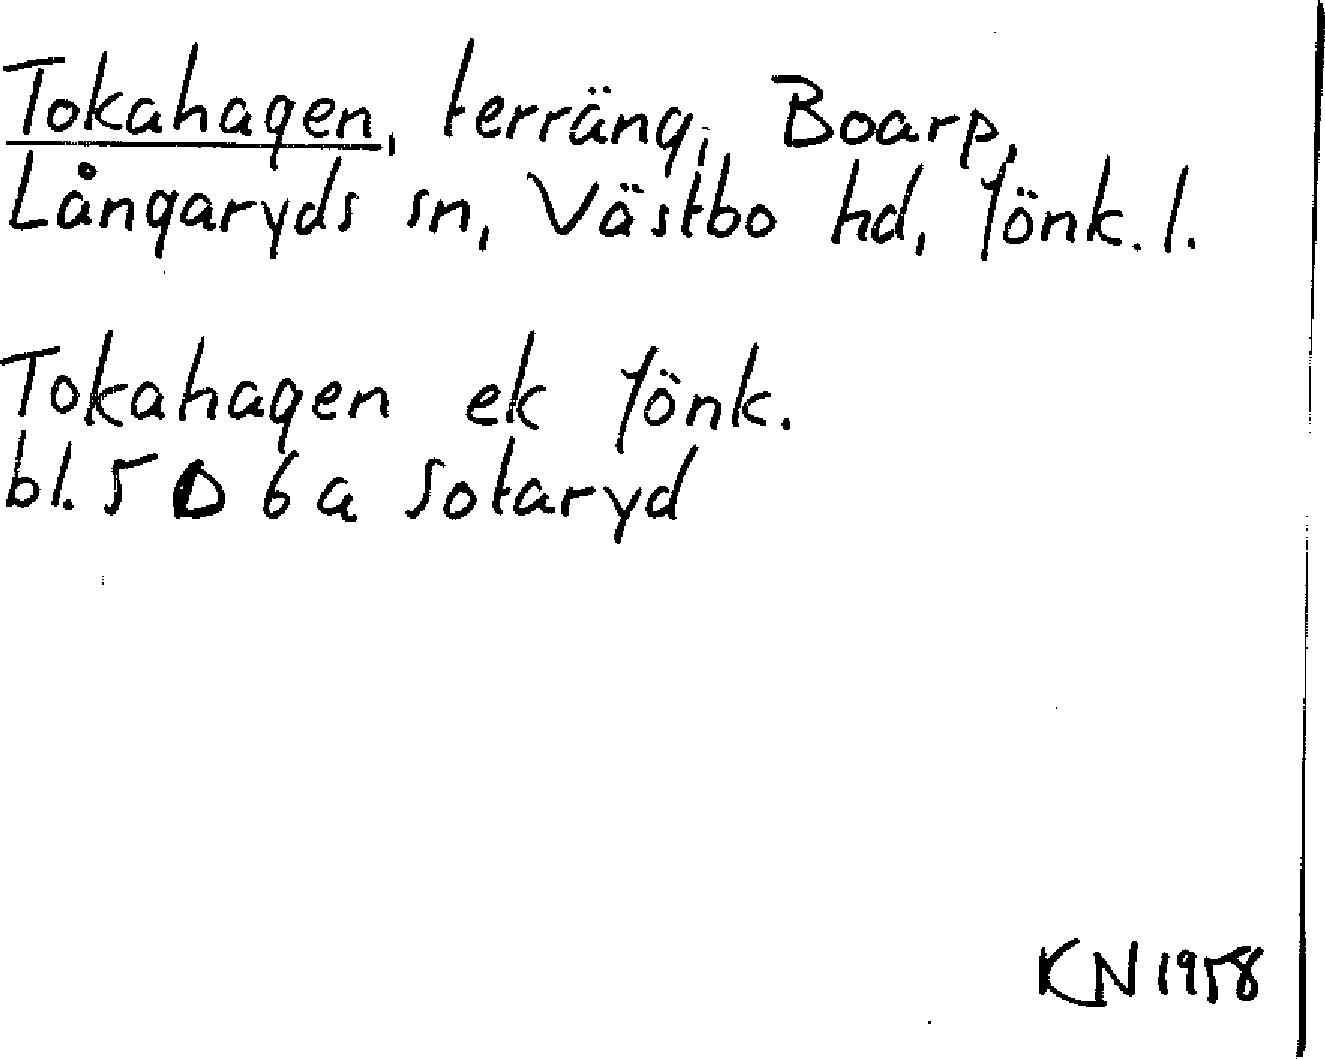 Tokahagen, terräng, Boarp,
Långaryds sn, Västbo hd, Jönk. l.
Tokahagen ek Jönk.
bl. 5 D 6 a Sotaryd
KN 1958